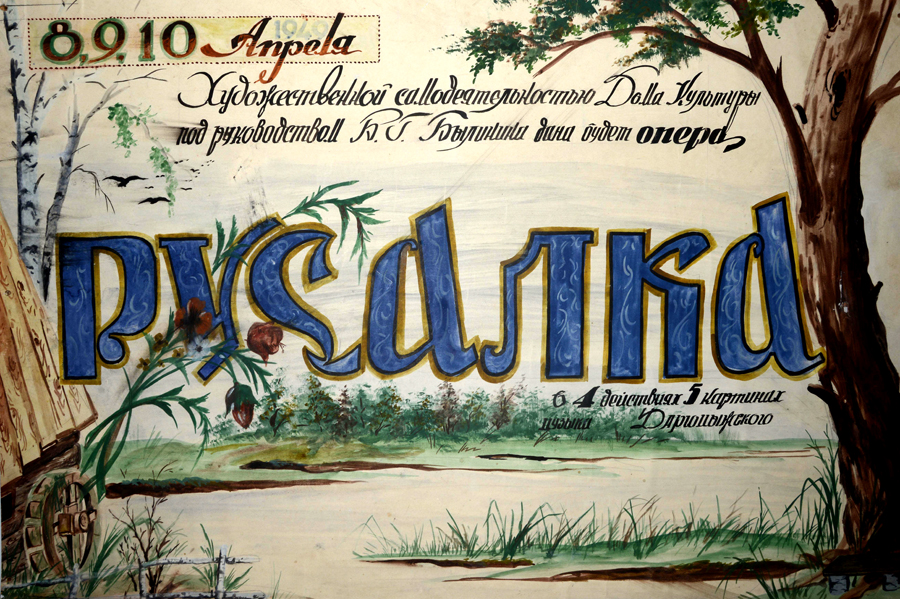 1949
8, 9, 10 Апреля
Художественной самодеятельностью Дома Культуры
под руководством В. Г. Былинина дана будет опера
РУСАЛКА
в 4 действиях 5 картинах
музыка Даргомыжского